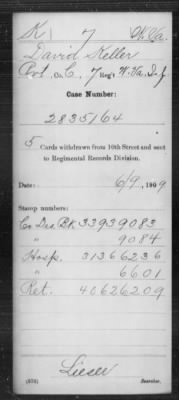 K 7 W.Va.
David Keller
Pvt. Co. C, 7 Reg't W. Va. Inf.
Case Number:
2835164
5 Cards withdrawn from 10th Street and sent
to Regimental Records Division.
Date: 6/9, 1909
Stamp numbers:
Co Des Bk 33939083
" 9084
Hosp. 31366236
" 6601
Ret. 40626209
Lieser
(838) Searcher.